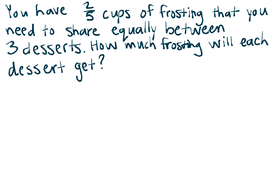 You have 2/5 cups of frosting that you
need to share equally between
3 desserts. How much frosting will each
dessert get?